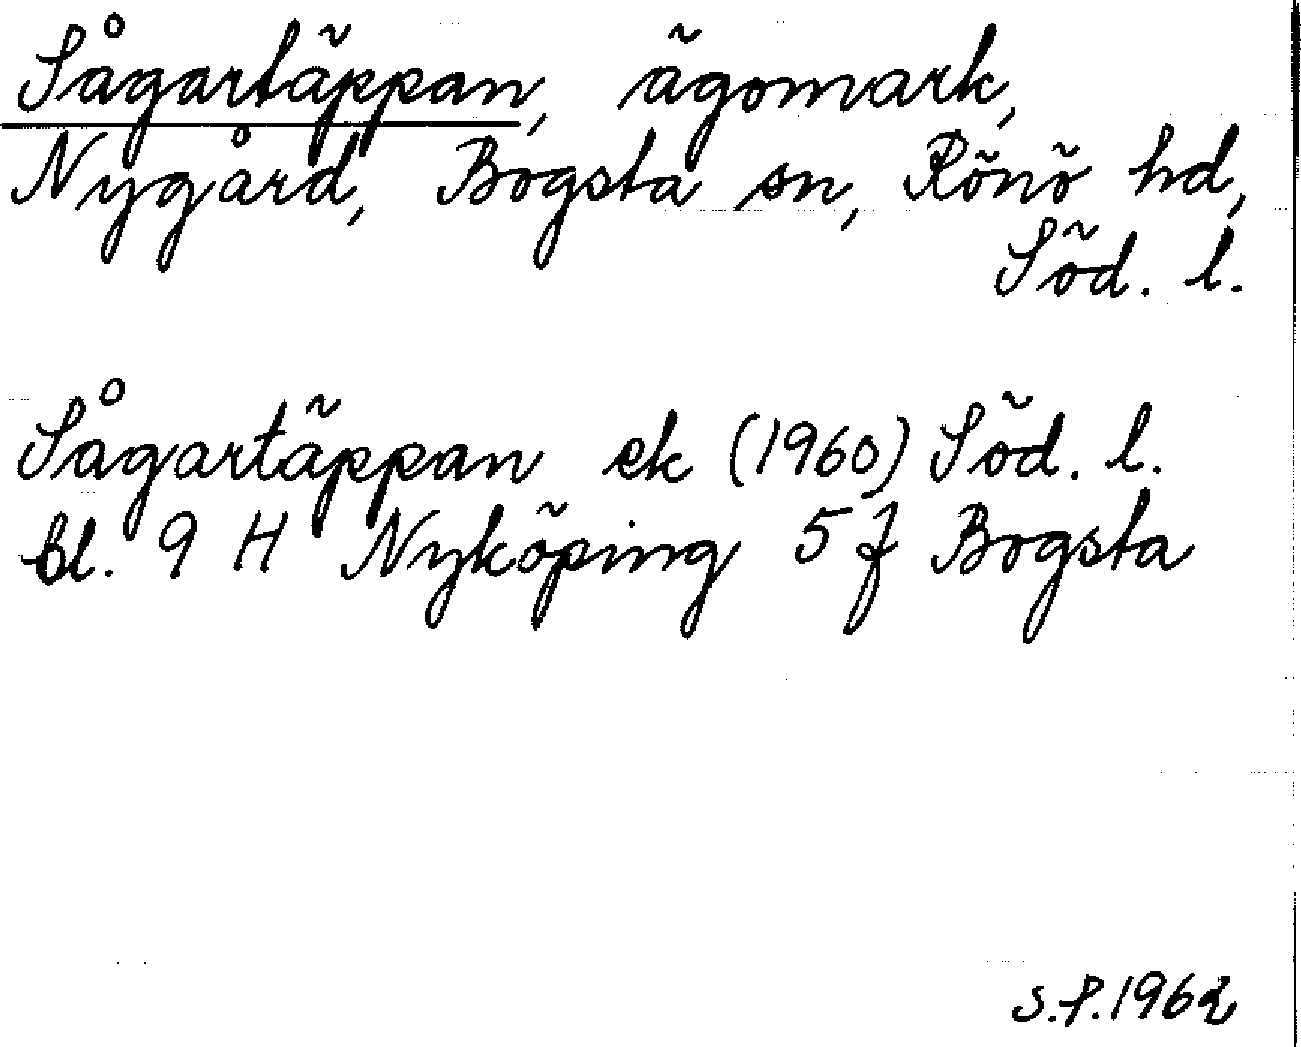 Sågartäppan, ägomark,
Nygård, Bogsta sn, Rönö hd,
Söd. l.
Sågartäppan ek (1960) Söd. l.
bl. 9 H Nyköping 5 f Bogsta
S.P. 1962